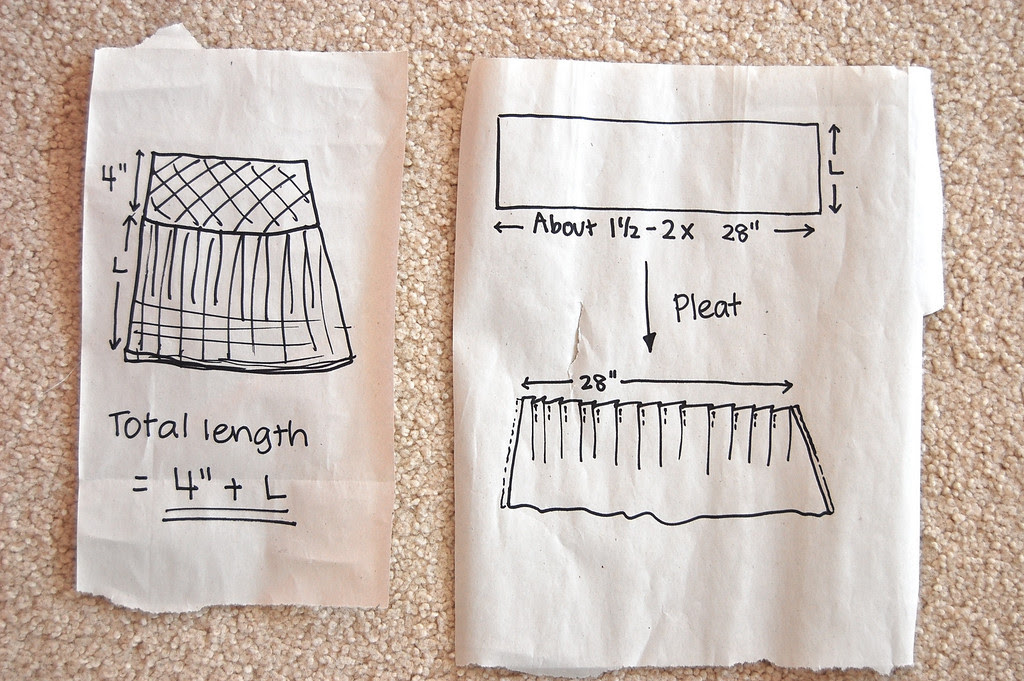 4"
L
Total length
= 4" + L
L
About 1½ - 2 x 28"
Pleat
28"